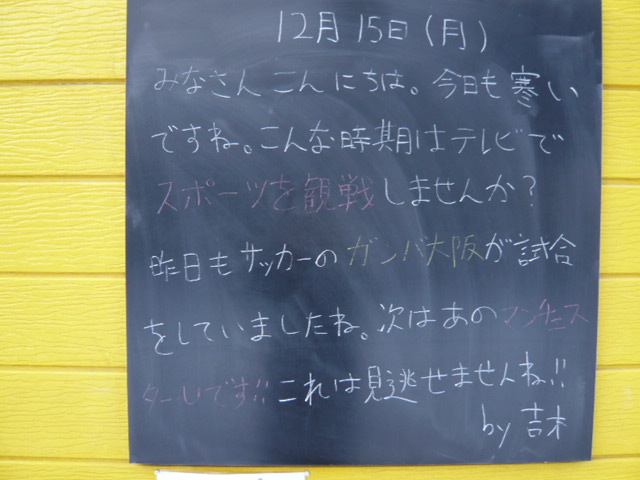 12月15日(月)
みなさんこんにちは。今日も寒い
ですね。こんな時期はテレビで
スポーツを観戦しませんか?
昨日もサッカーのガンバ大阪が試合
をしていましたね。次はあのマンチェス
ターUです!!これは見逃せませんね!!
by 吉木